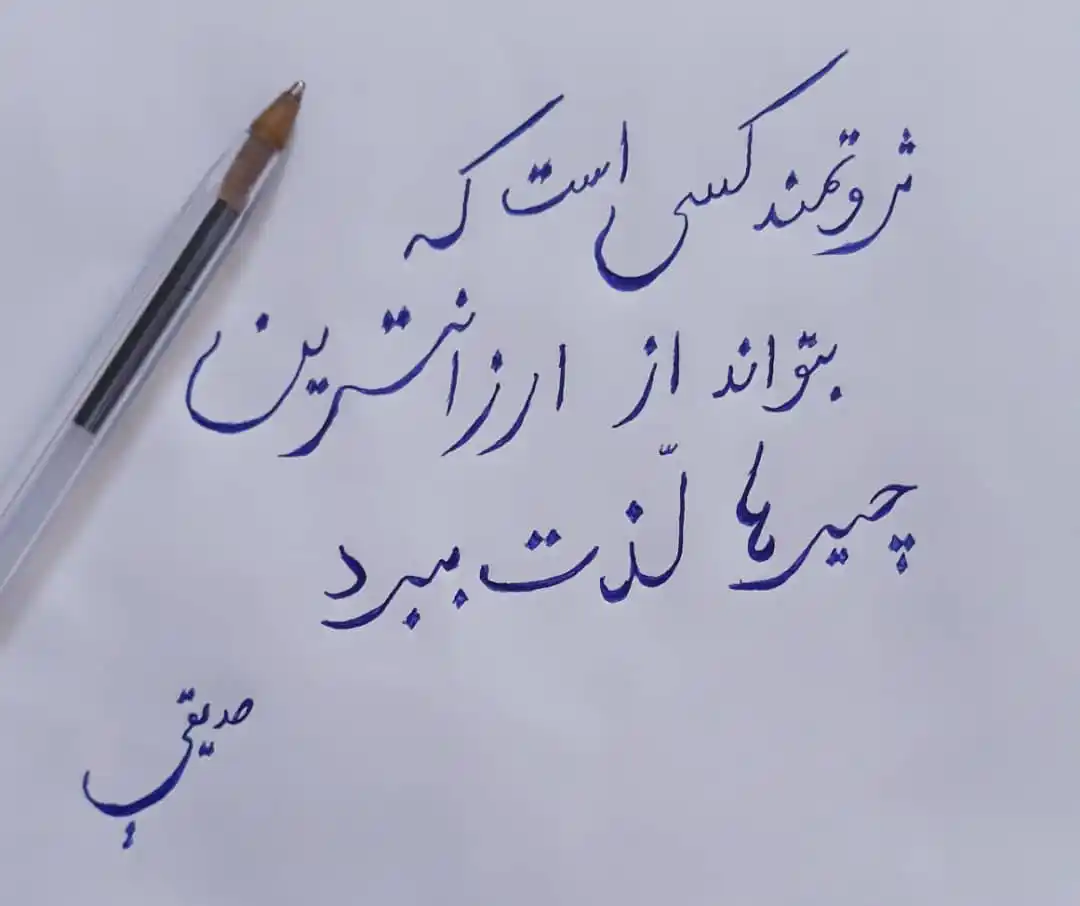 ثروتمند کسی است که
بتواند از ارزانترین
چیزها لذّت ببرد
صدیقی